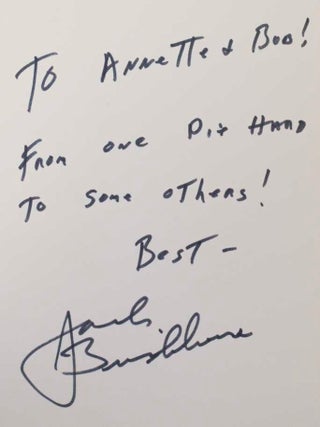 To Annette & Boo!
From one Pit Hand
To some others!
Best –